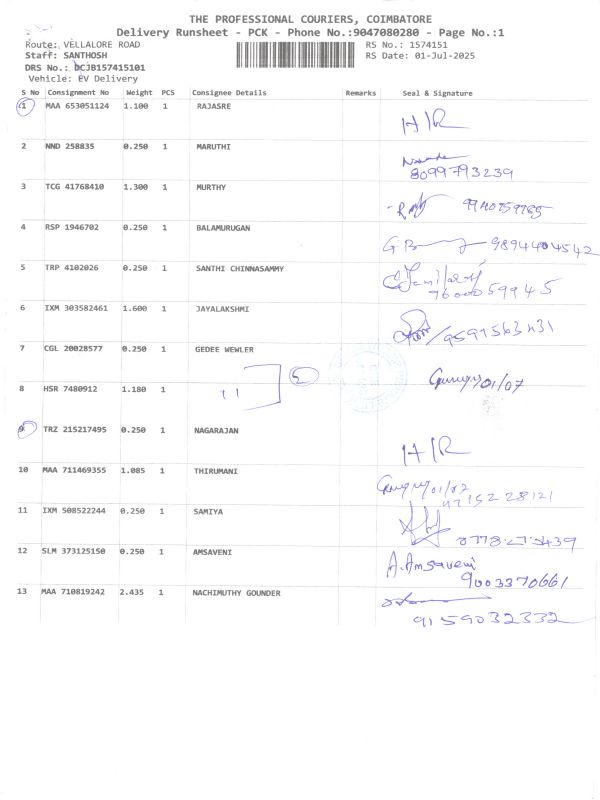 THE PROFESSIONAL COURIERS, COIMBATORE
Delivery Runsheet - PCK - Phone No.:9047080280 - Page No.:1
Route: VELLALORE ROAD RS No.: 1574151
Staff: SANTHOSH RS Date: 01-Jul-2025
DRS No.: DCJB157415101
Vehicle: EV Delivery
S No Consignment No Weight PCS Consignee Details Remarks Seal & Signature
1 MAA 653051124 1.100 1 RAJASRE H/R
2 NND 258835 0.250 1 MARUTHI
8099793239
3 TCG 41768410 1.300 1 MURTHY 9940759765
4 RSP 1946702 0.250 1 BALAMURUGAN 9894404542
5 TRP 4102026 0.250 1 SANTHI CHINNASAMMY
7600059945
6 IXM 303582461 1.600 1 JAYALAKSHMI /9597563431
7 CGL 20028577 0.250 1 GEDEE WEWLER
01/07
8 HSR 7480912 1.180 1 11
9 TRZ 215217495 0.250 1 NAGARAJAN H/R
10 MAA 711469355 1.085 1 THIRUMANI 01/07
11 IXM 508522244 0.250 1 SAMIYA
12 SLM 373125150 0.250 1 AMSAVENI A.Amsaveni
9003370661
13 MAA 710819242 2.435 1 NACHIMUTHY GOUNDER
9159032332